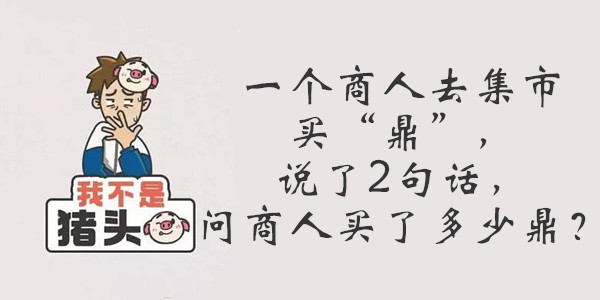 一个商人去集市
买“鼎”，
说了2句话，
问商人买了多少鼎？
我不是
猪头